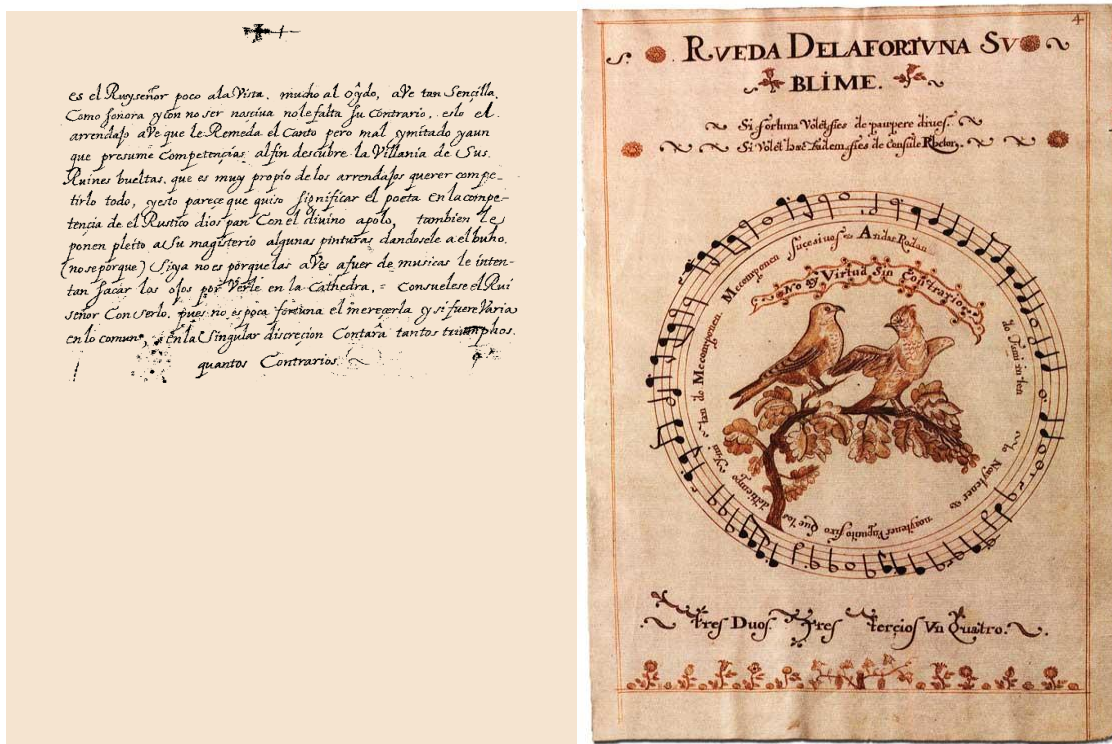 es el Ruyseñor poco ala Vista. mucho al oÿdo, aVe tan Sençilla.
Como sonora y con no ser nosciua nole falta su Contrario. esto el.
arrendajo aVe que le Remeda el Canto pero mal ymitado yaun
que presume Competençias alfin descubre la Villania de Sus.
Ruines bueltas. que es muy propio de los arrendajos querer compe-
tirlo todo, yesto pareçe que quiso significar el poeta en la compe-
tençia de el Rustico dios pan Con el diuino apolo, tambien le
ponen pleito a Su magisterio algunas pinturas dandosele a el buho.
(nose porque) Siya no es pòrque las aVes afuer de musicas le inten-
tan sacar los ojos por Verle en la Cathedra. = Consuelese el Rui
señor Con serlo. pues no es poca fortuna el mereçerla y si fuere Varia
en lo comun, en la Singular discreçion Contarà tantos triumphos.
quantos Contrarios.
4
RVEDA DELAFORTVNA SV
BLIME.
Si fortuna Volet fies de paupere diues.
Si Volet hæc eadem fies de Consule Rhetor.
suçesiuos Andar Rodan
No ay Virtud Sin Contrario
do Tum tu ten
lo Nay tener
noay tener Vn punto fixo Que los
del tiempo Y mi
tan do Me componen. Me componen
tres Duos. Tres terçios Vn Quatro.